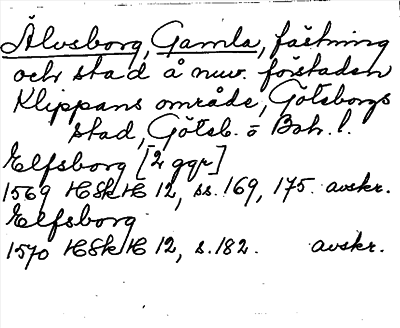 Älvsborg, Gamla, fästning
och stad å nuv. förstaden
Klippans område, Göteborgs
stad, Göteb. o Boh. l.
Elfsborg [2 ggr]
1569 HSkH 12, ss. 169, 175. avskr.
Elfsborg
1570 HSkH 12, s. 182. avskr.